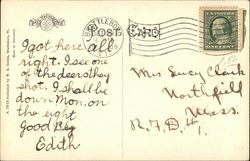 POST CARD
BRATTLEBORO
I got here all
right. I see one
of the deers they
shot. I shall be
down Mon. on
the eight
Good Bye
Edith
Mrs Lucy Clark
Northfield
Mass.
R.F.D. #1.